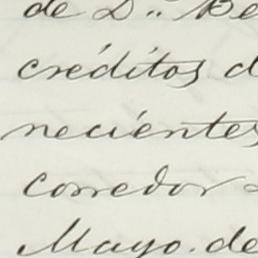 de D.ⁿ Be
créditos d
necientes
corredor
Mayo. de